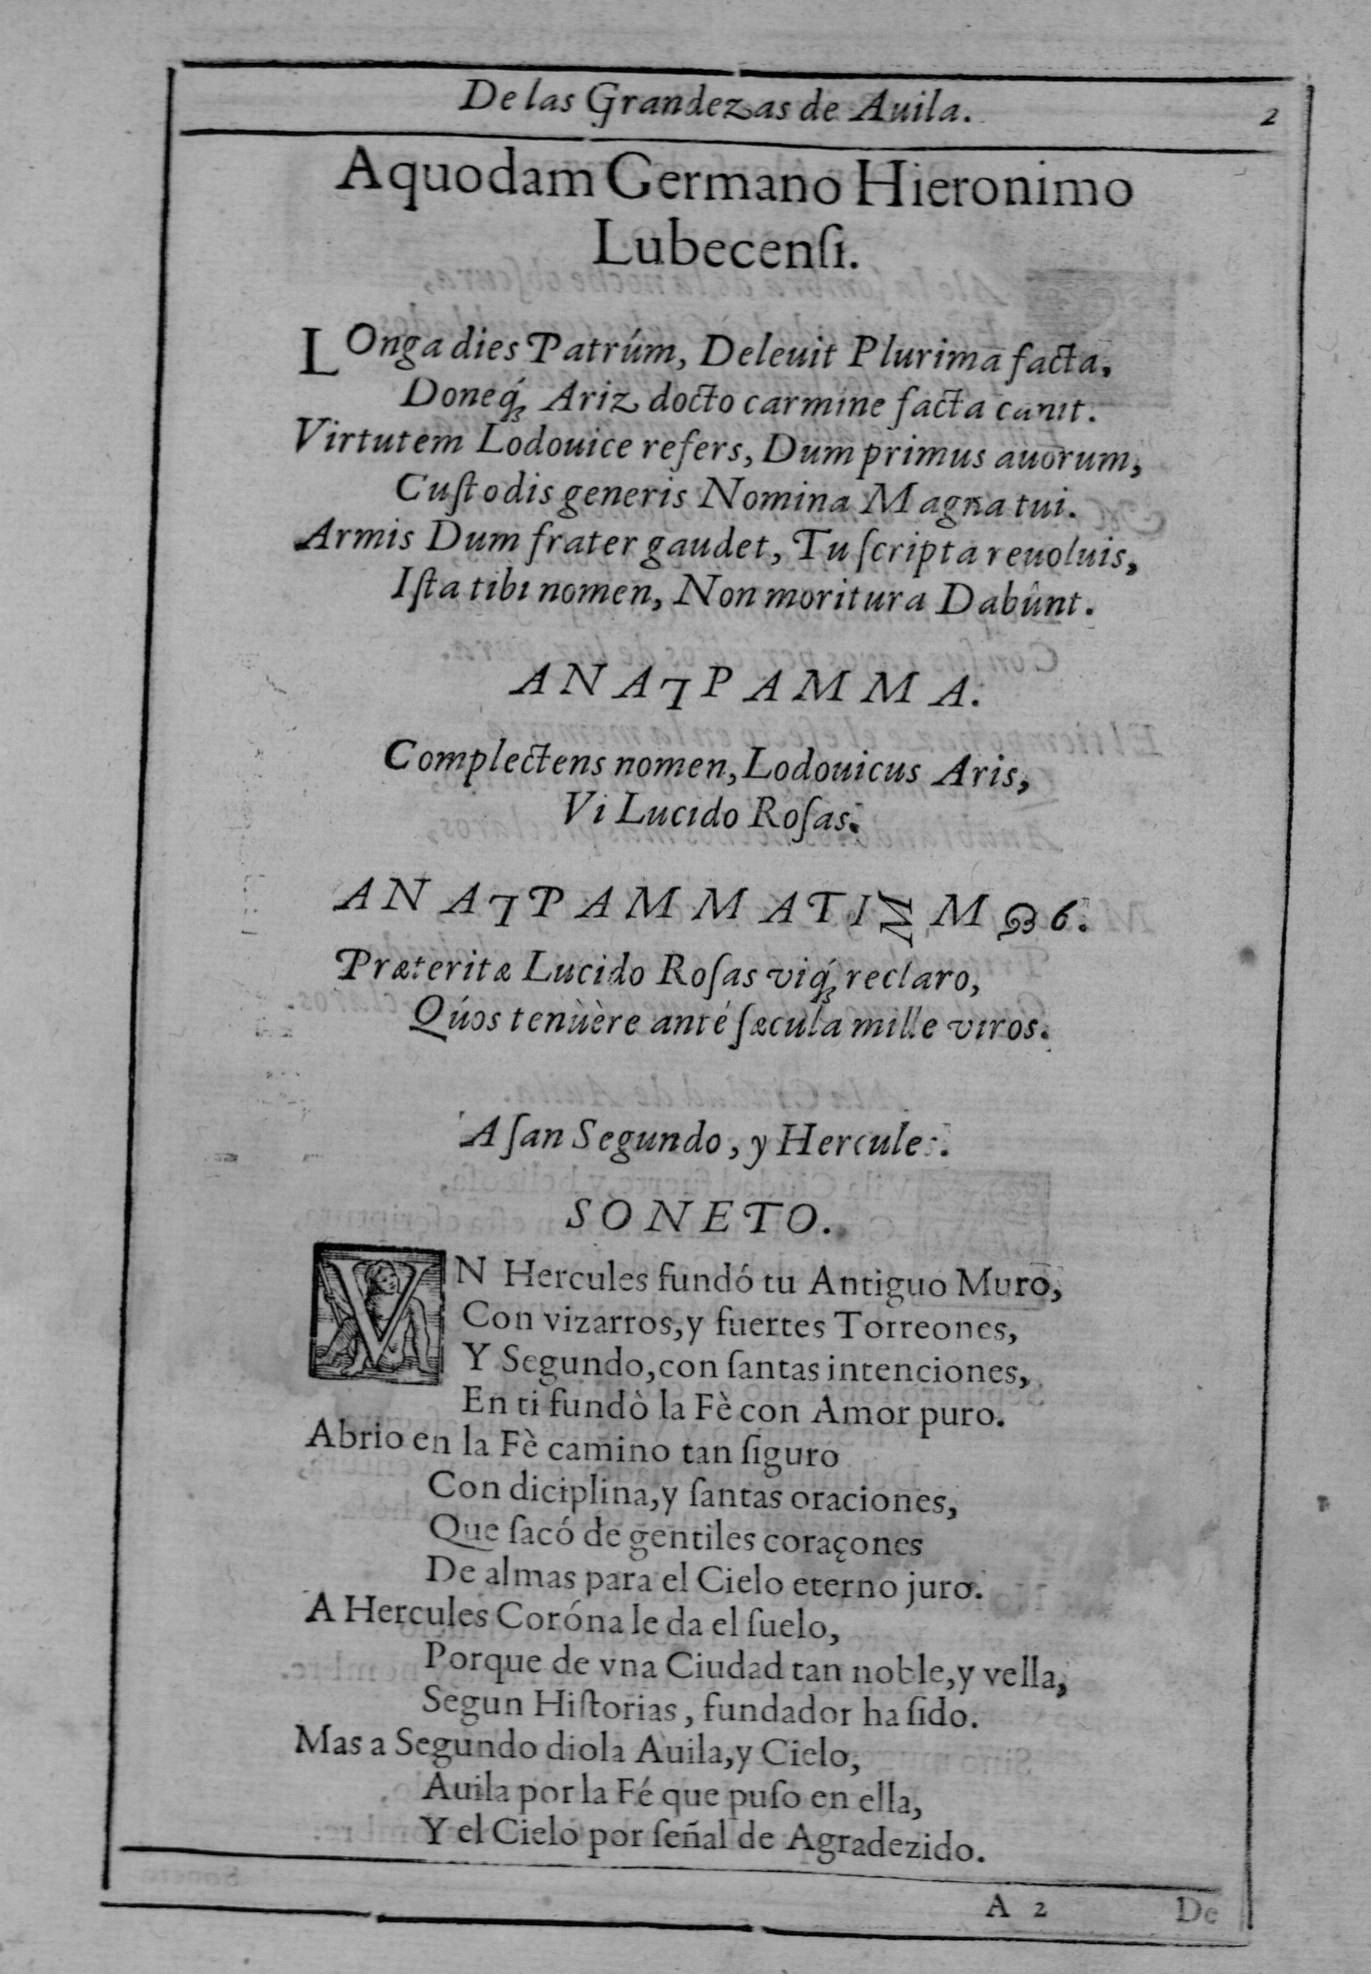 De las Grandezas de Auila. 2
Aquodam Germano Hieronimo
Lubecenſi.
LOnga dies Patrúm, Deleuit Plurima facta,
Doneq́; Ariz docto carmine facta canit.
Virtutem Lodouice refers, Dum primus auorum,
Cuſtodis generis Nomina Magna tui.
Armis Dum frater gaudet, Tu ſcripta reuoluis,
Iſta tibi nomen, Non moritura Dabûnt.
ANAꓶPAMMA.
Complectens nomen, Lodouicus Aris,
Vi Lucido Roſas.
ANAꓶPAMMATIΣMOς.
Præteritæ Lucido Roſas viq́; reclaro,
Qúos tenùère anté ſæcula mille viros.
A ſan Segundo, y Hercules.
SONETO.
VN Hercules fundó tu Antiguo Muro,
Con vizarros, y fuertes Torreones,
Y Segundo, con ſantas intenciones,
En ti fundò la Fè con Amor puro.
Abrio en la Fè camino tan ſiguro
Con diciplina, y ſantas oraciones,
Que ſacó de gentiles coraçones
De almas para el Cielo eterno juro.
A Hercules Coróna le da el ſuelo,
Porque de vna Ciudad tan noble, y vella,
Segun Hiſtorias, fundador ha ſido.
Mas a Segundo diola Auila, y Cielo,
Auila por la Fé que puſo en ella,
Y el Cielo por ſeñal de Agradezido.
A 2 De